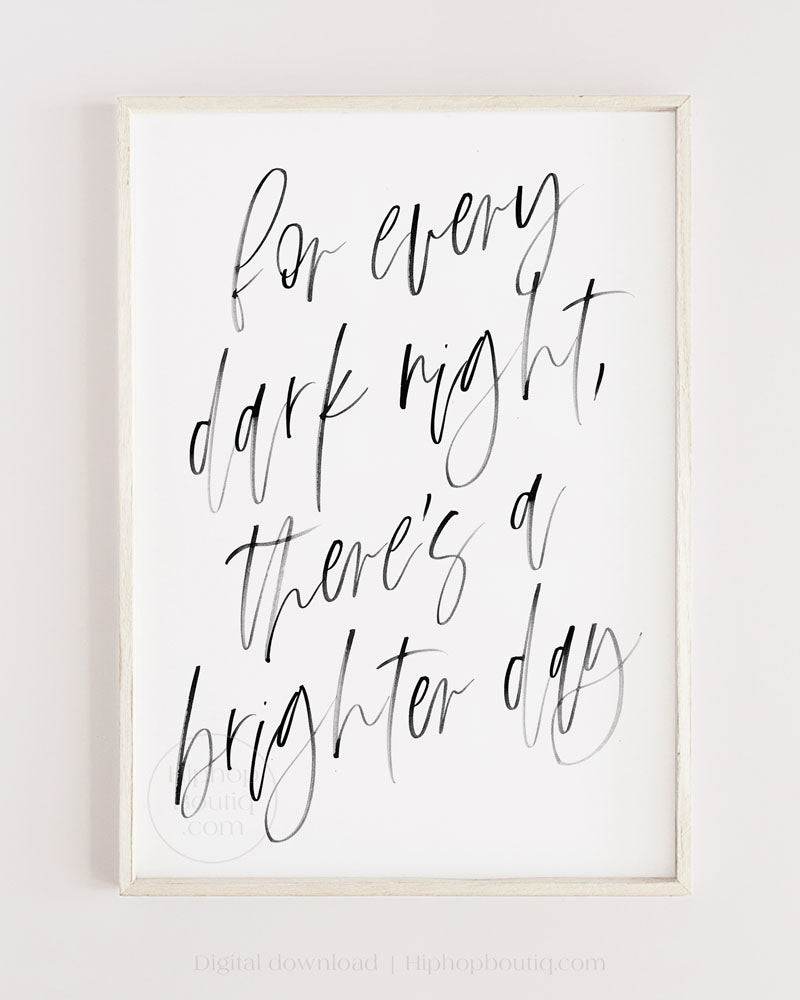 for every
dark night,
there's a
brighter day
Hiphop
Boutiq
.com
Digital download | Hiphopboutiq.com